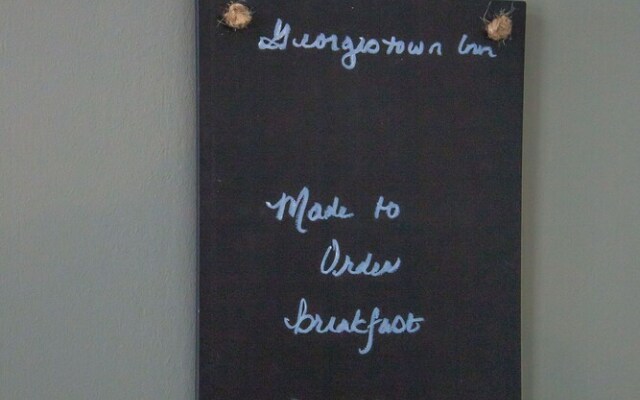 Georgestown Inn
Made to
Order
breakfast